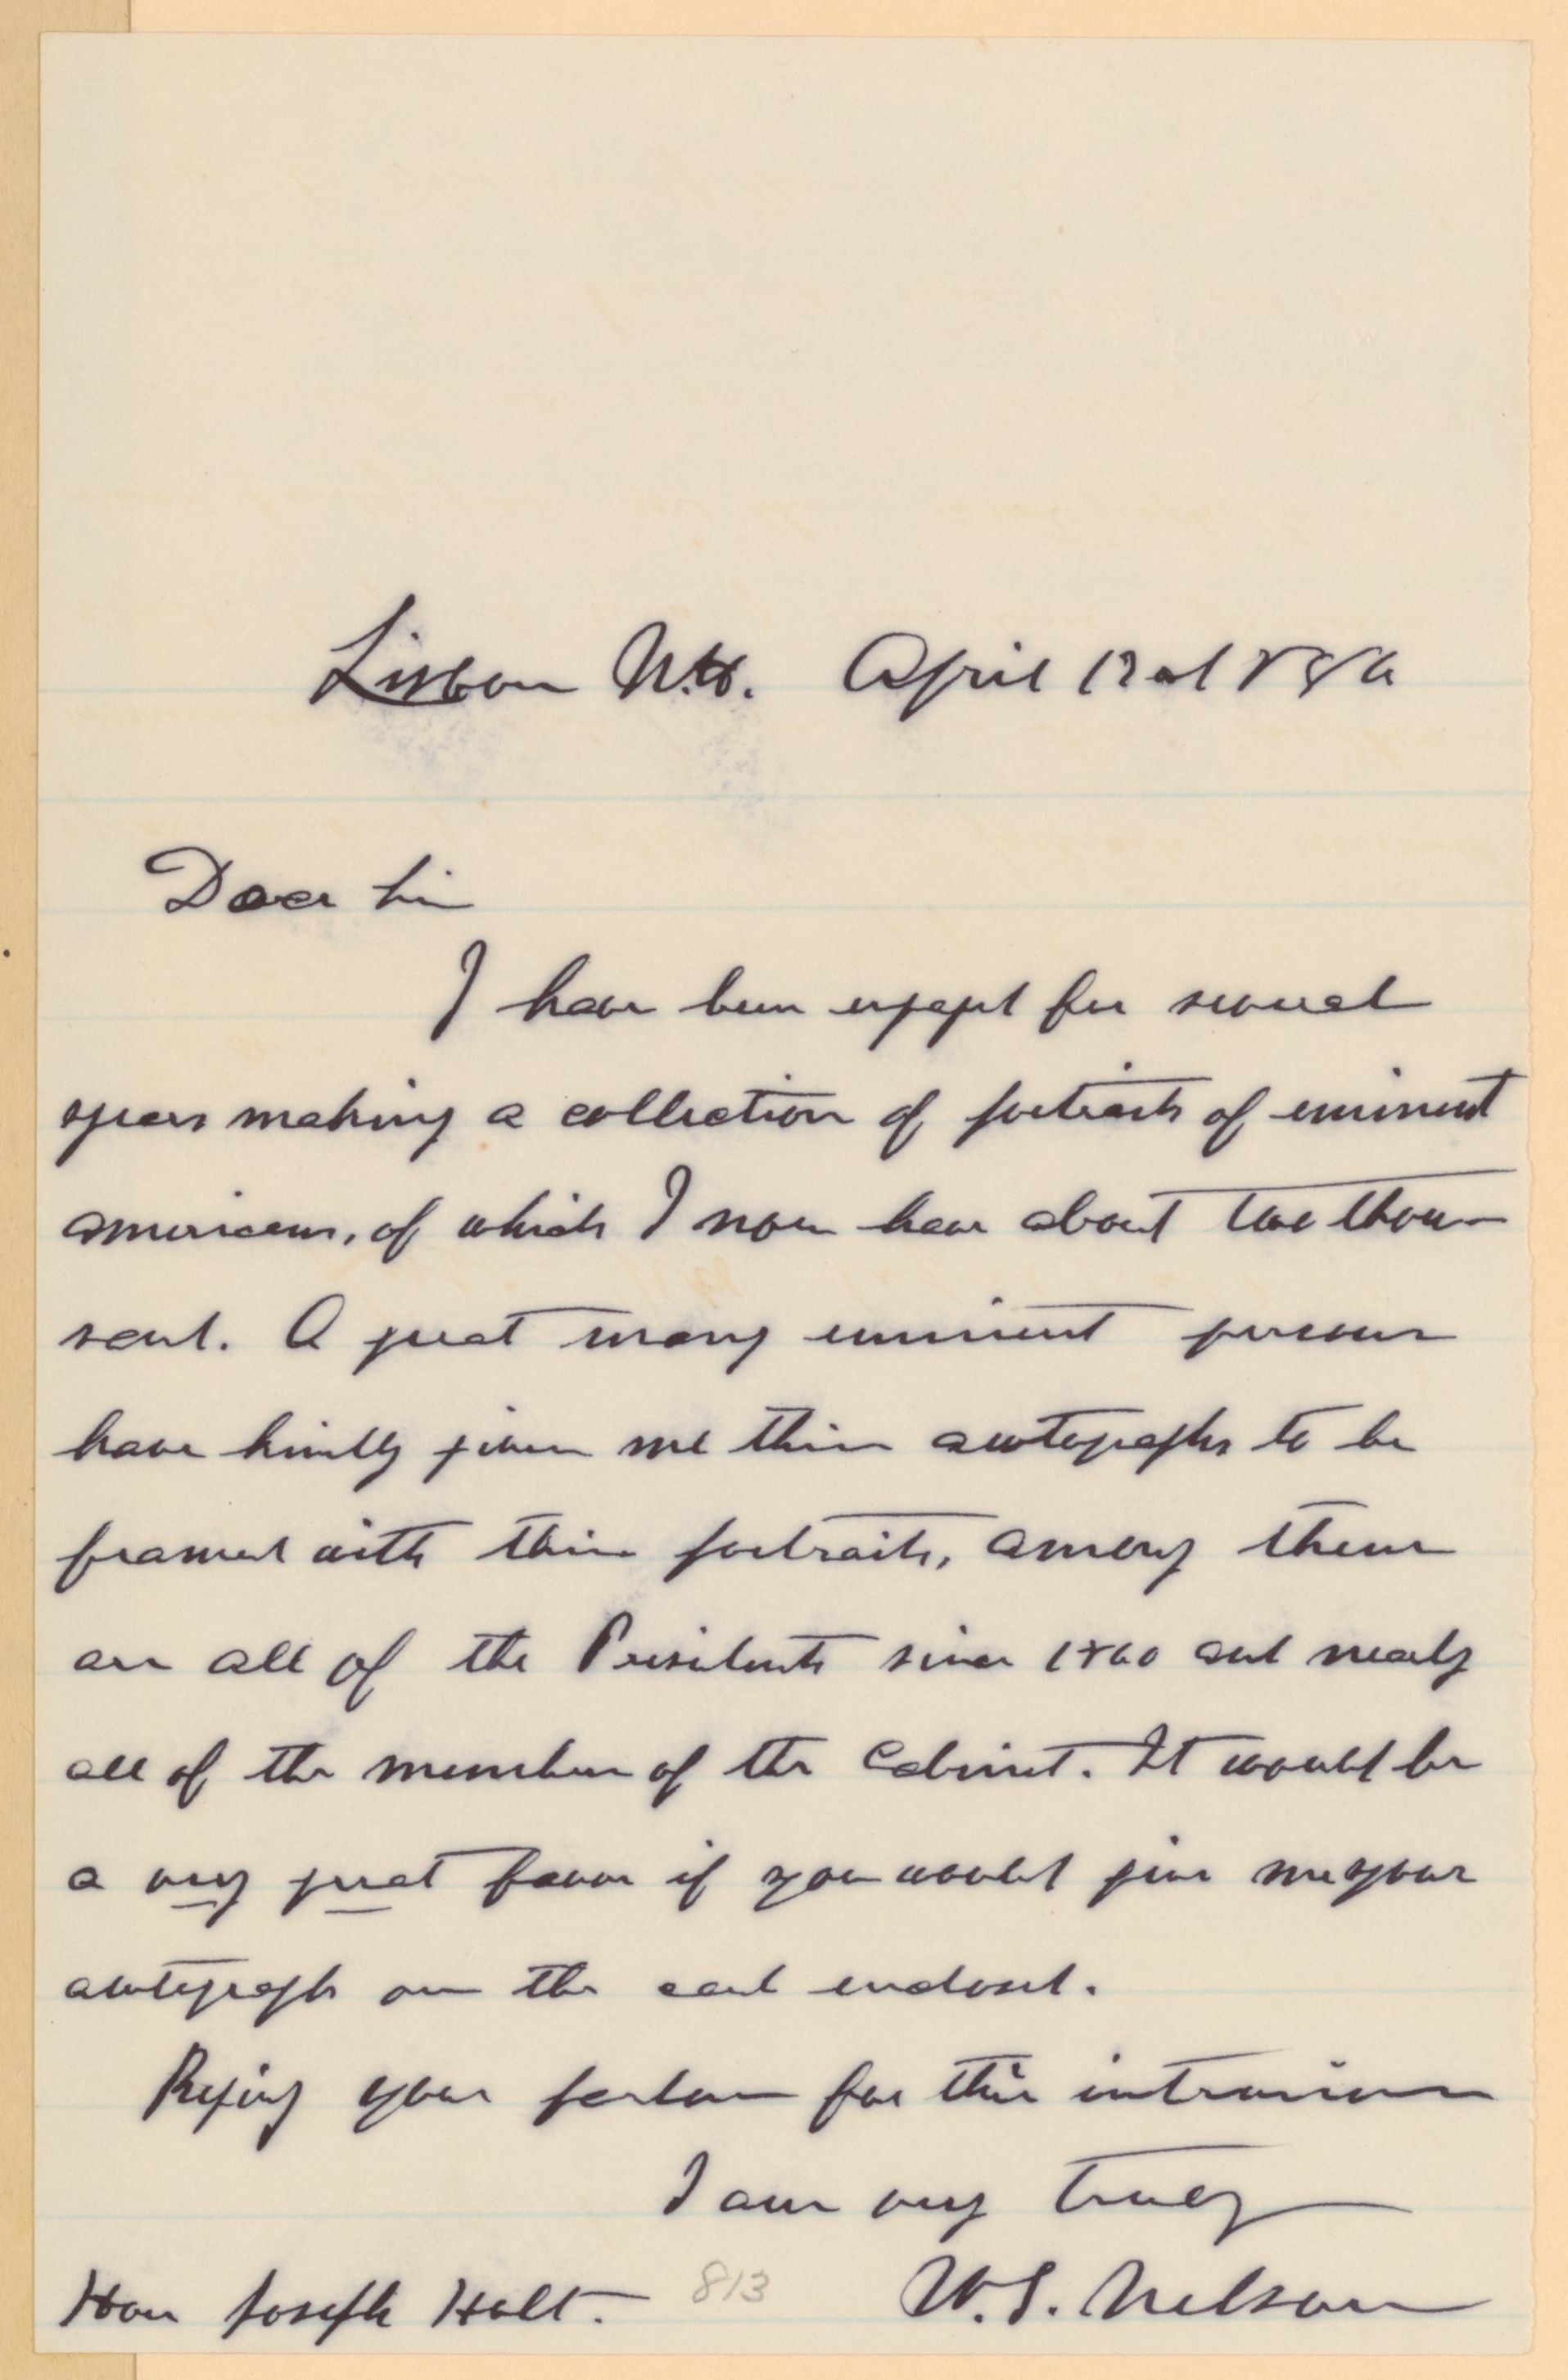 Lisbon N.H. April 12nd 1886
Dear Sir
I have been engaged for several
years making a collection of portraits of eminent
americans, of which I now have about two thou-
sand. A great many eminent persons
have kindly given me their autographs to be
framed with their portraits, among them
are all of the Presidents since 1860 and nearly
all of the members of the Cabinet. It would be
a very great favor if you would give me your
autograph on the card enclosed.
Begging your pardon for this intrusion
I am very truly
Hon Joseph Holt. 813 W.S. Nelson